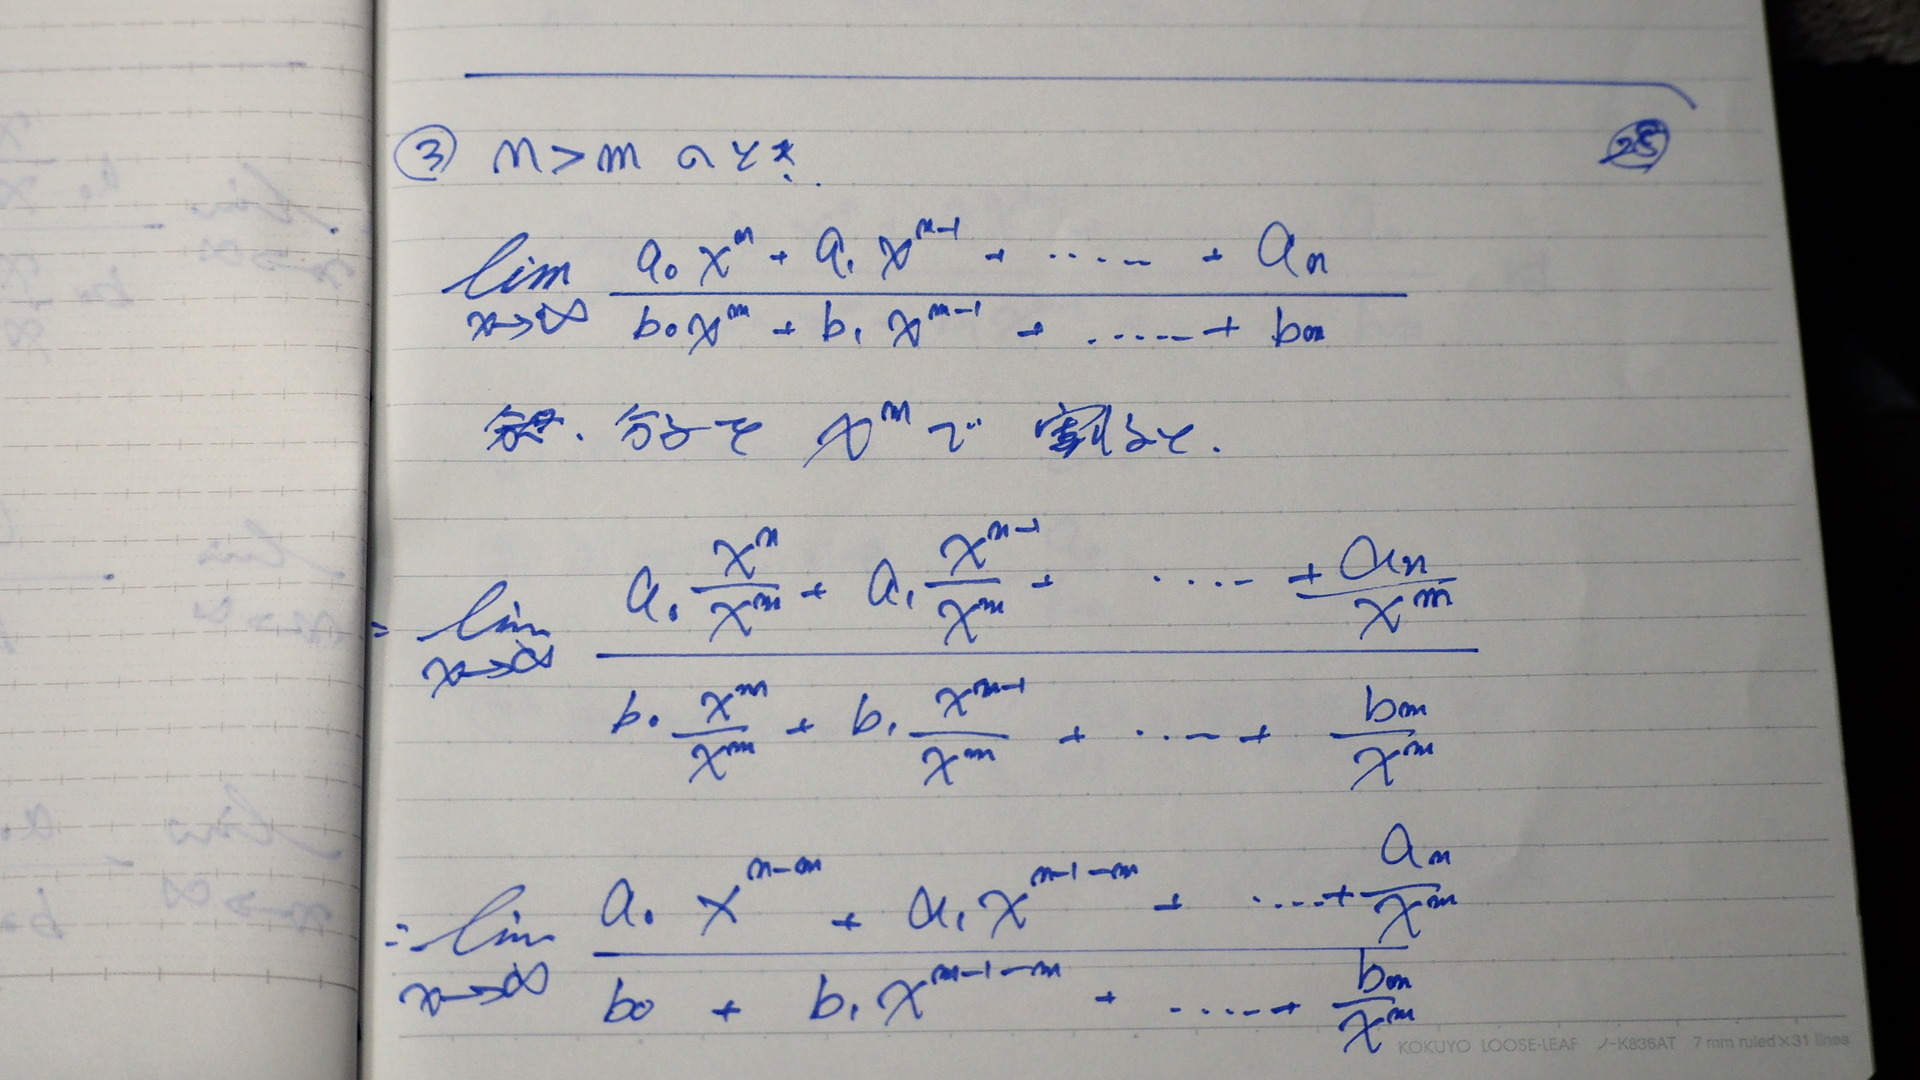 ③ n>m のとき. ㉘
lim x→∞ (a₀xⁿ + a₁xⁿ⁻¹ + ...... + aₙ) / (b₀xᵐ + b₁xᵐ⁻¹ + ...... + bₘ)
分母. 分子を xᵐで 割ると.
= lim x→∞ (a₀ xⁿ/xᵐ + a₁ xⁿ⁻¹/xᵐ + ..... + aₙ/xᵐ) / (b₀ xᵐ/xᵐ + b₁ xᵐ⁻¹/xᵐ + ..... + bₘ/xᵐ)
= lim x→∞ (a₀ xⁿ⁻ᵐ + a₁xⁿ⁻¹⁻ᵐ + ..... + aₙ/xᵐ) / (b₀ + b₁xᵐ⁻¹⁻ᵐ + ...... + bₘ/xᵐ)
KOKUYO LOOSE-LEAF ノ-K836AT 7 mm ruled×31 lines